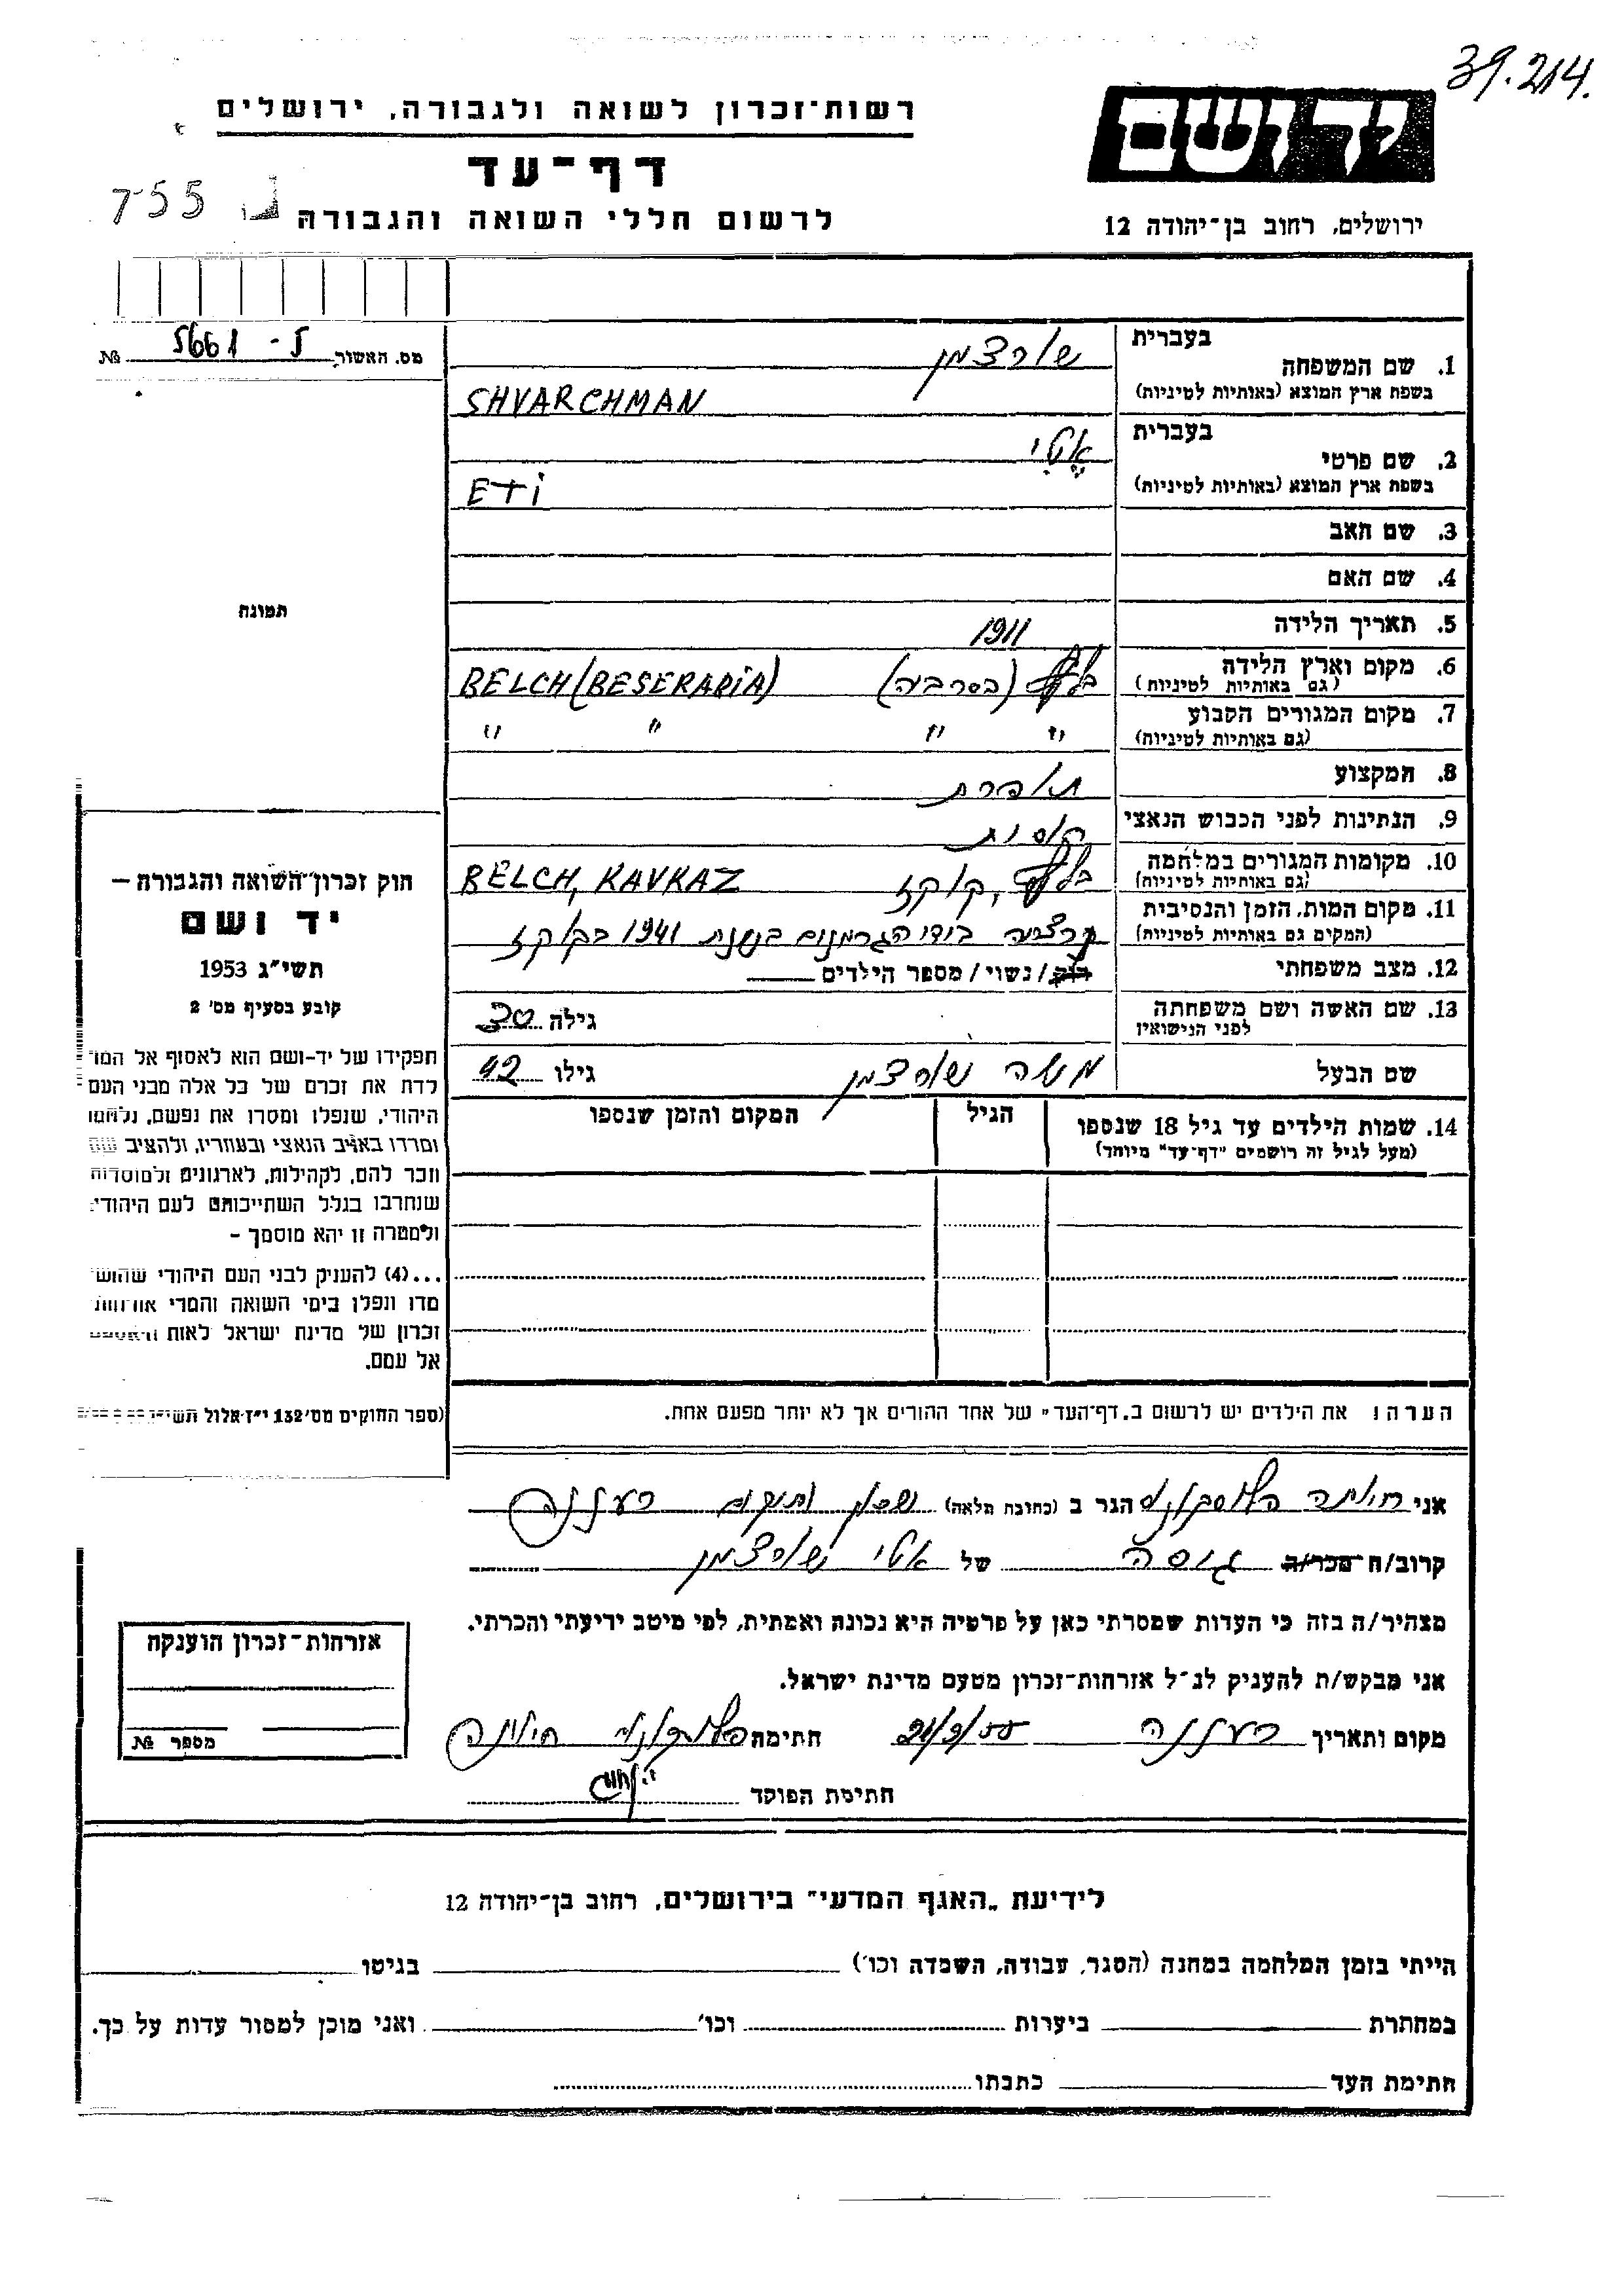 39.214.
יד ושם
רשות־זכרון לשואה ולגבורה, ירושלים
דף־עד
לרשום חללי השואה והגבורה
755
ירושלים, רחוב בן־יהודה 12
מס. האשור 5661 - ל №
בעברית
1. שם המשפחה שורצמן
בשפת ארץ המוצא (באותיות לטיניות) SHVARCHMAN
בעברית
2. שם פרטי אטי
בשפת ארץ המוצא (באותיות לטיניות) ETI
3. שם האב
4. שם האם
תמונה
5. תאריך הלידה 1911
6. מקום וארץ הלידה (בסרביה) BELCH (BESERABIA)
(גם באותיות לטיניות)
7. מקום המגורים הקבוע " " " "
(גם באותיות לטיניות)
8. המקצוע תופרת
9. הנתינות לפני הכבוש הנאצי
10. מקומות המגורים במלחמה קוקז, BELCH, KAVKAZ
(גם באותיות לטיניות)
11. מקום המות, הזמן והנסיבות בידי הגרמנים בשנת 1941 בקוקז
(המקום גם באותיות לטיניות)
12. מצב משפחתי רוק/ נשוי/ מספר הילדים
13. שם האשה ושם משפחתה גילה 30
לפני הנישואין
שם הבעל משה שורצמן גילו 42
14. שמות הילדים עד גיל 18 שנספו הגיל המקום והזמן שנספו
(מעל לגיל זה רושמים "דף־עד" מיוחד)
חוק זכרון השואה והגבורה –
יד ושם
תשי"ג 1953
קובע בסעיף מס' 2
תפקידו של יד-ושם הוא לאסוף אל המו־
לדת את זכרם של כל אלה מבני העם
היהודי, שנפלו ומסרו את נפשם, נלחמו
ומרדו באויב הנאצי ובעוזריו, ולהציב שם
וזכר להם, לקהילות, לארגונים ולמוסדות
שנחרבו בגלל השתייכותם לעם היהודי:
ולמטרה זו יהא מוסמך –
...(4) להעניק לבני העם היהודי שהוש־
מדו ונפלו בימי השואה והמרי אזרחות
זכרון של מדינת ישראל לאות
אל עמם.
(ספר החוקים מס' 132 י"ז אלול
הערה: את הילדים יש לרשום ב„דף־העד" של אחד ההורים אך לא יותר מפעם אחת.
אני הגר ב (כתובת מלאה) שכון ותיקים רעננה
קרוב/ה מכר/ה גיסה של אטי שורצמן
מצהיר/ה בזה כי העדות שמסרתי כאן על פרטיה היא נכונה ואמתית, לפי מיטב ידיעתי והכרתי.
אני מבקש/ת להעניק לנ"ל אזרחות־זכרון מטעם מדינת ישראל.
מקום ותאריך רעננה חתימה
חתימת הפוקד
אזרחות־זכרון הוענקה
מספר №
לידיעת „האגף המדעי" בירושלים, רחוב בן־יהודה 12
הייתי בזמן המלחמה במחנה (הסגר, עבודה, השמדה וכו') בגיטו
במחתרת ביערות וכו' ואני מוכן למסור עדות על כך.
חתימת העד כתבתו